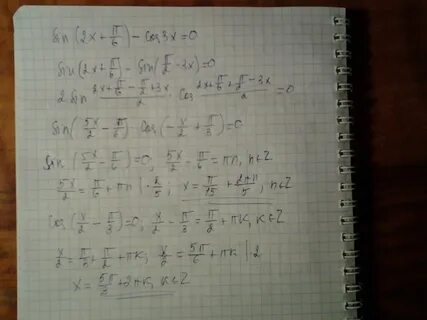 sin(2x+π/6) - cos3x=0
sin(2x+π/6) - sin(π/2-3x)=0
2sin (2x+π/6-π/2+3x)/2 cos (2x+π/6+π/2-3x)/2 =0
sin(5x/2-π/6) · cos(-x/2+π/3)=0
sin(5x/2-π/6)=0, 5x/2-π/6=πn, n∈Z
5x/2=π/6+πn |·2/5; x=π/15+2πn/5, n∈Z
cos(x/2-π/3)=0, x/2-π/3=π/2+πk, k∈Z
x/2=π/3+π/2+πk, x/2=5π/6+πk |·2
x=5π/3+2πk, k∈Z